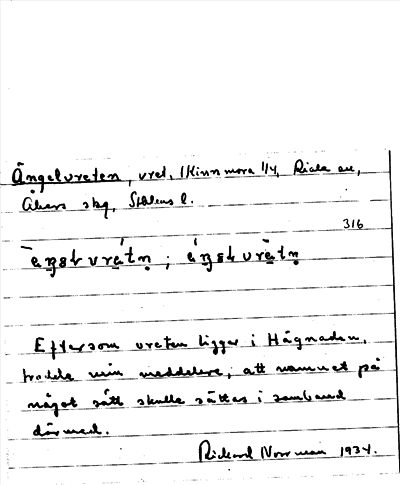 Ängelvreten, vret, (Kinnmora 1/4, Riala sn,
Åkers skg, Sthlms l.
316
Eftersom vreten ligger i Hägnaden,
trodde min meddelare, att namnet på
något sätt skulle sättas i samband
därmed.
Rickard Norrman 1934.